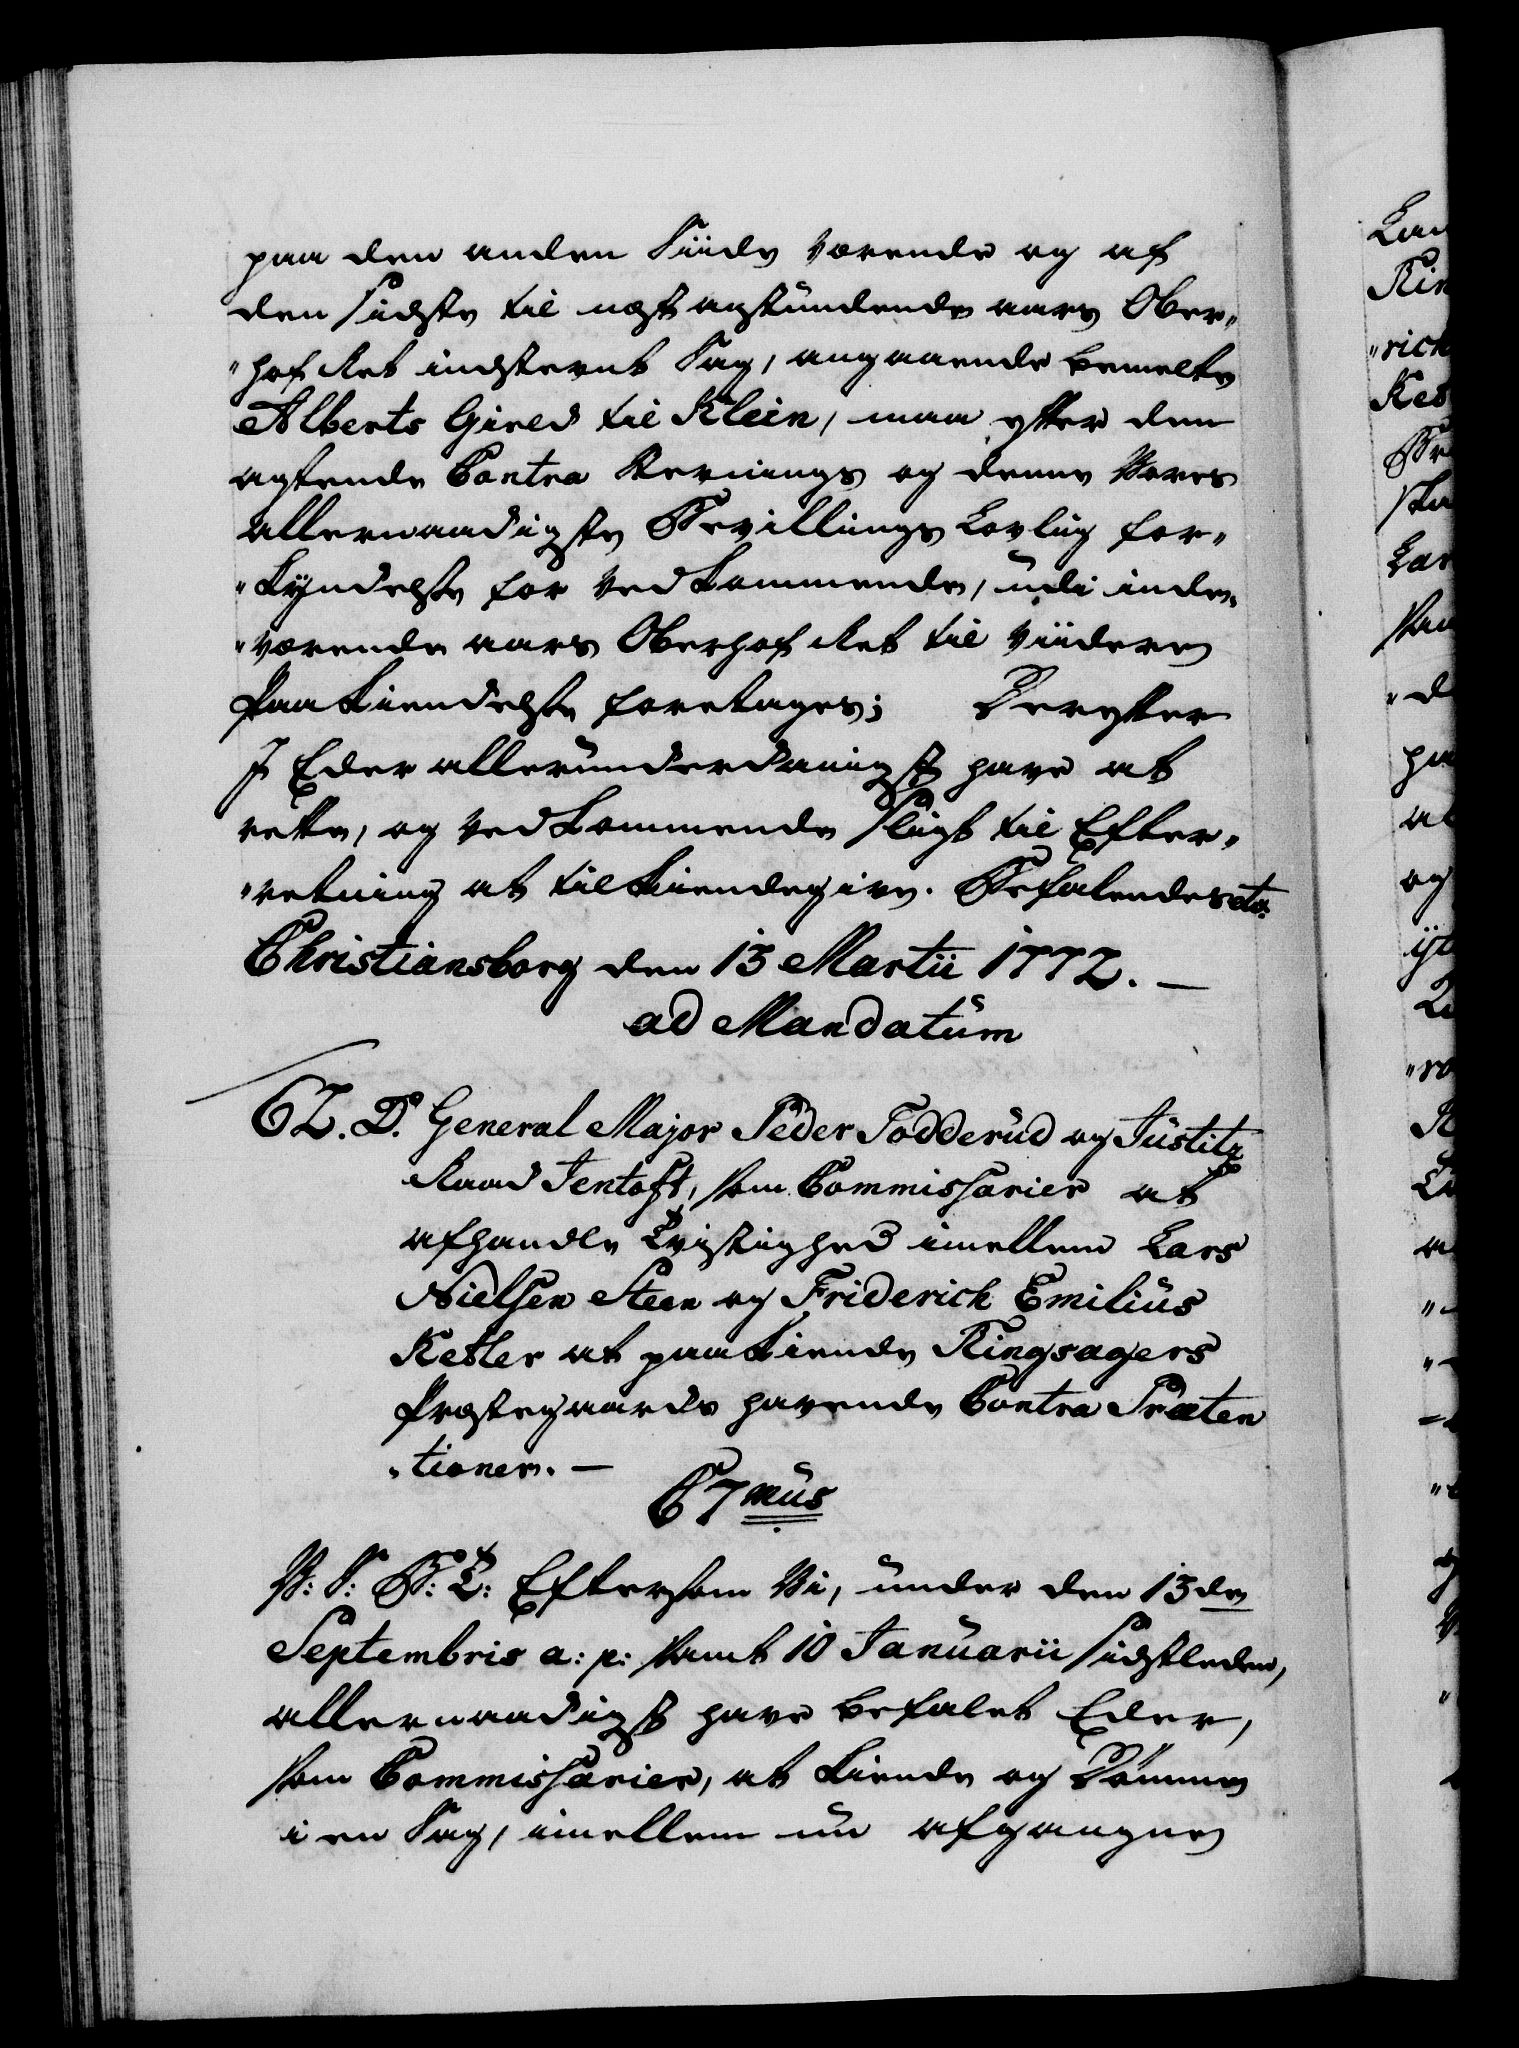 paa den anden Siide værende og af
den sidste til næst agstundende aars Ober„
„hof Ret indstevnt Sag, angaaende bemelte
Alberts Gield til Klein, maa efter den
agtende Contra Stevnings og denne Vores
allernaadigste Bevillings Lovlig for„
„kyndelse for Vedkommende, udi inde„
„værende aars Oberhof Ret til Viidere
Paakiendelse foretages; Derefter
I Eder allerunderdanigst have at
rette, og Vedkommende sligt til Efter„
„retning at tilkiendegive. Befalendes etc.
Christiansborg den 13 Martii 1772. —
ad Mandatum
62. D. General Major Peder Todderud og Justitz
Raad Jentoft, som Commissarier at
afhandle Tvistighed imellem Lars
Nielsen Steen og Friderich Emilius
Ketler at paakiende Ringsagers
Præstegaards havende Contra Præten
„tioner. —
C7mus
V: S: G: T: Eftersom Vi, under den 13de
Septembris a: p: samt 10 Januarii sidstleden,
allernaadigst have befalet Eder,
som Commissarier, at kiende og Dömme
i en Sag, imellem nu afgangne